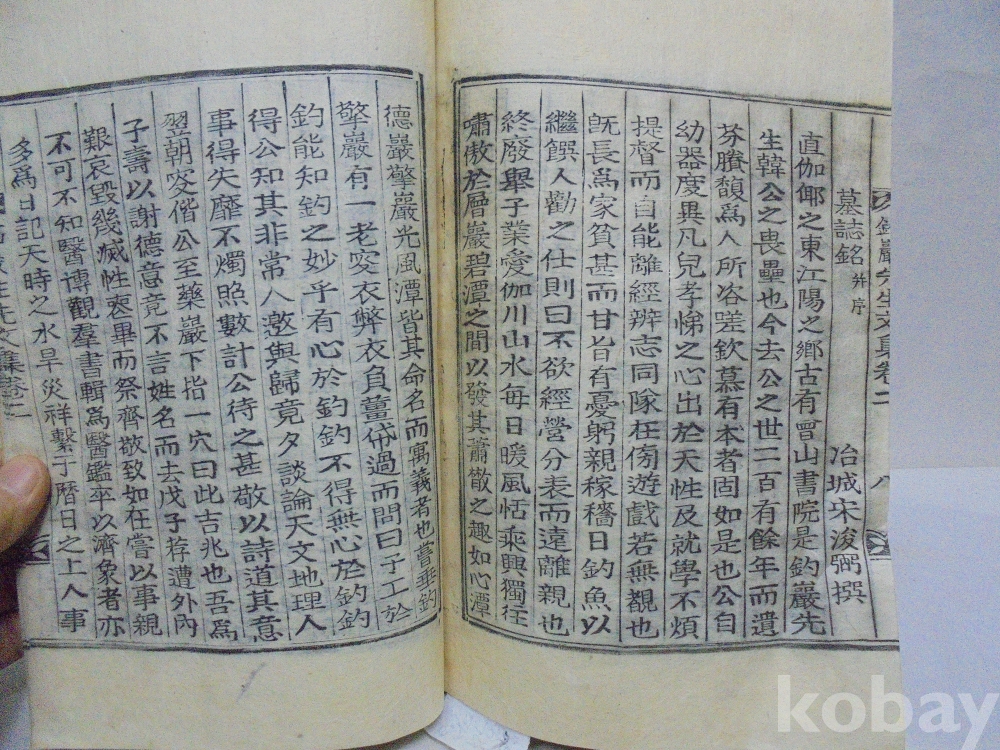 墓誌銘 并序
冶城宋浚弼撰
直伽倻之東江陽之鄉古有曾山書院是釣巖先
生韓公之畏壘也今去公之世二百有餘年而遺
芬賸馥爲人所咨嗟欽慕有本者固如是也公自
幼器度異凡兒孝悌之心出於天性及就學不煩
提督而自能離經辨志同隊在傍遊戲若無覩也
旣長爲家貧甚而甘旨有憂躬親稼穡日釣魚以
繼饌人勸之仕則曰不欲經營分表而遠離親也
終廢擧子業愛伽川山水每日暖風恬乘興獨往
嘯傲於層巖碧潭之間以發其蕭散之趣如心潭
德巖擎巖光風潭皆其命名而寓義者也嘗垂釣
擎巖有一老叟衣弊衣負薑帒過而問曰子工於
釣能知釣之妙乎有心於釣釣不得無心於釣釣
得公知其非常人邀與歸竟夕談論天文地理人
事得失靡不燭照數計公待之甚敬以詩道其意
翌朝叟偕公至蘂巖下指一穴曰此吉兆也吾爲
子壽以謝德意竟不言姓名而去戊子荐遭外內
艱哀毀幾滅性喪畢而祭齊敬致如在嘗以事親
不可不知醫博觀羣書輯爲醫鑑卒以濟象者亦
多爲日記天時之水旱災祥繫于曆日之上人事
卷二
八
kobay